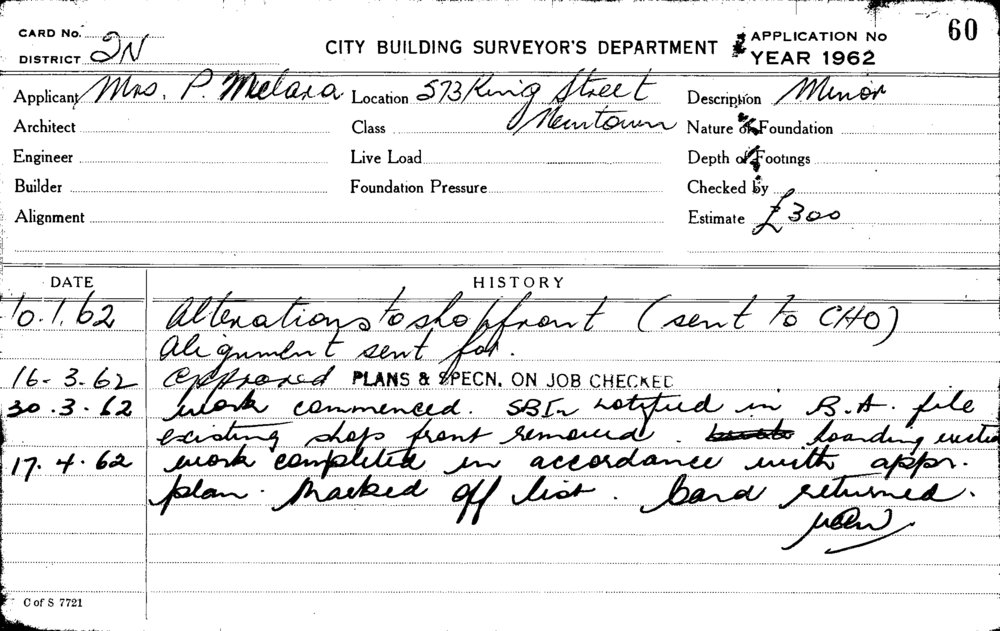 CARD No.
DISTRICT 2N
CITY BUILDING SURVEYOR'S DEPARTMENT
APPLICATION No 60
YEAR 1962
Applicant Mrs. P. Melara Location 573 King Street Description Minor
Architect Class Newtown Nature of Foundation
Engineer Live Load Depth of Footings
Builder Foundation Pressure Checked by
Alignment Estimate £300
DATE HISTORY
10.1.62 Alterations to shopfront (sent to CHO)
Alignment sent for.
16-3-62 Approved PLANS & SPECN. ON JOB CHECKED
30.3.62 work commenced. SBIn notified in B.A. file
existing shop front removed. hoarding erected
17.4.62 work completed in accordance with appr.
plan. Marked off list. Card returned.
C of S 7721